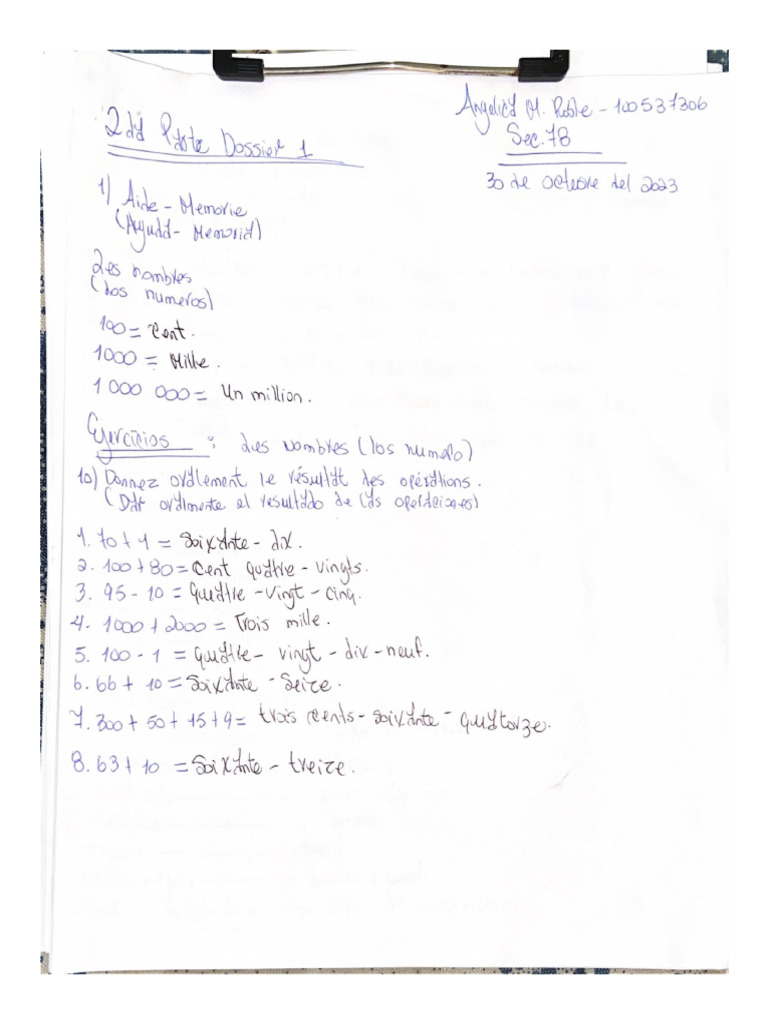 Angelica M. Roble - 100537306
Sec. 78
30 de octubre del 2023
2da Parte Dossier 1
1) Aide - Memorie
(Ayuda - Memoria)
Les nombres
(Los numeros)
100 = Cent.
1000 = Mille.
1 000 000 = Un million.
Ejercicios : Les Nombres (los numero)
10) Donnez oralement le résultat des opérations.
(Dar oralmente el resultado de las operaciones)
1. 70 + 1 = Soixante - dix.
2. 100 + 80 = Cent quatre - vingts.
3. 95 - 10 = Quatre - vingt - cinq.
4. 1000 + 2000 = Trois mille.
5. 100 - 1 = quatre - vingt - dix - neuf.
6. 66 + 10 = Soixante - Seize.
7. 300 + 50 + 15 + 9 = trois cents - soixante - quatorze.
8. 63 + 10 = Soixante - treize.